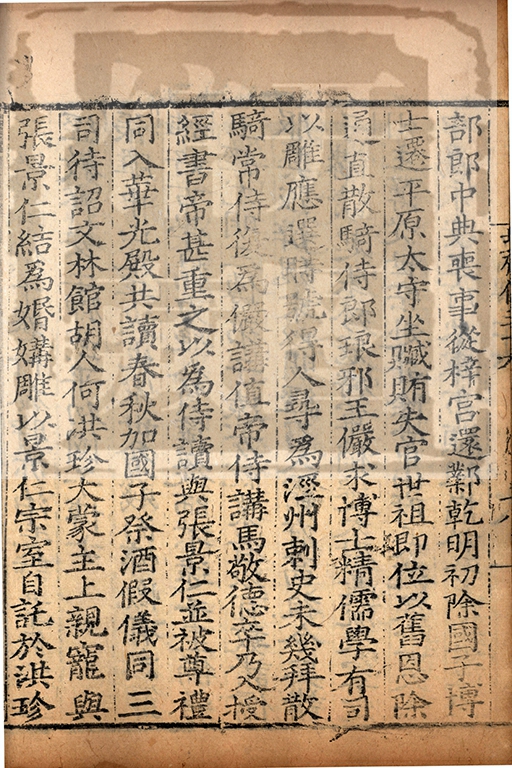 部郎中典喪事從梓宮還鄴乾明初除國子博
士遷平原太守坐贓賄失官世祖即位以舊恩除
通直散騎侍郎琅邪王儼求博士精儒學有司
以雕應選時號得人尋爲涇州刺史未幾拜散
騎常侍復爲儼講值帝侍講馬敬德卒乃入授
經書帝甚重之以爲侍讀與張景仁並被尊禮
同入華光殿共讀春秋加國子祭酒假儀同三
司待詔文林館胡人何洪珍大蒙主上親寵與
張景仁結爲婚媾雕以景仁宗室自託於洪珍